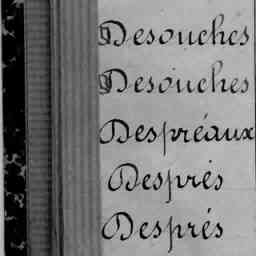 Desouches
Desouches
Despréaux
Després
Després